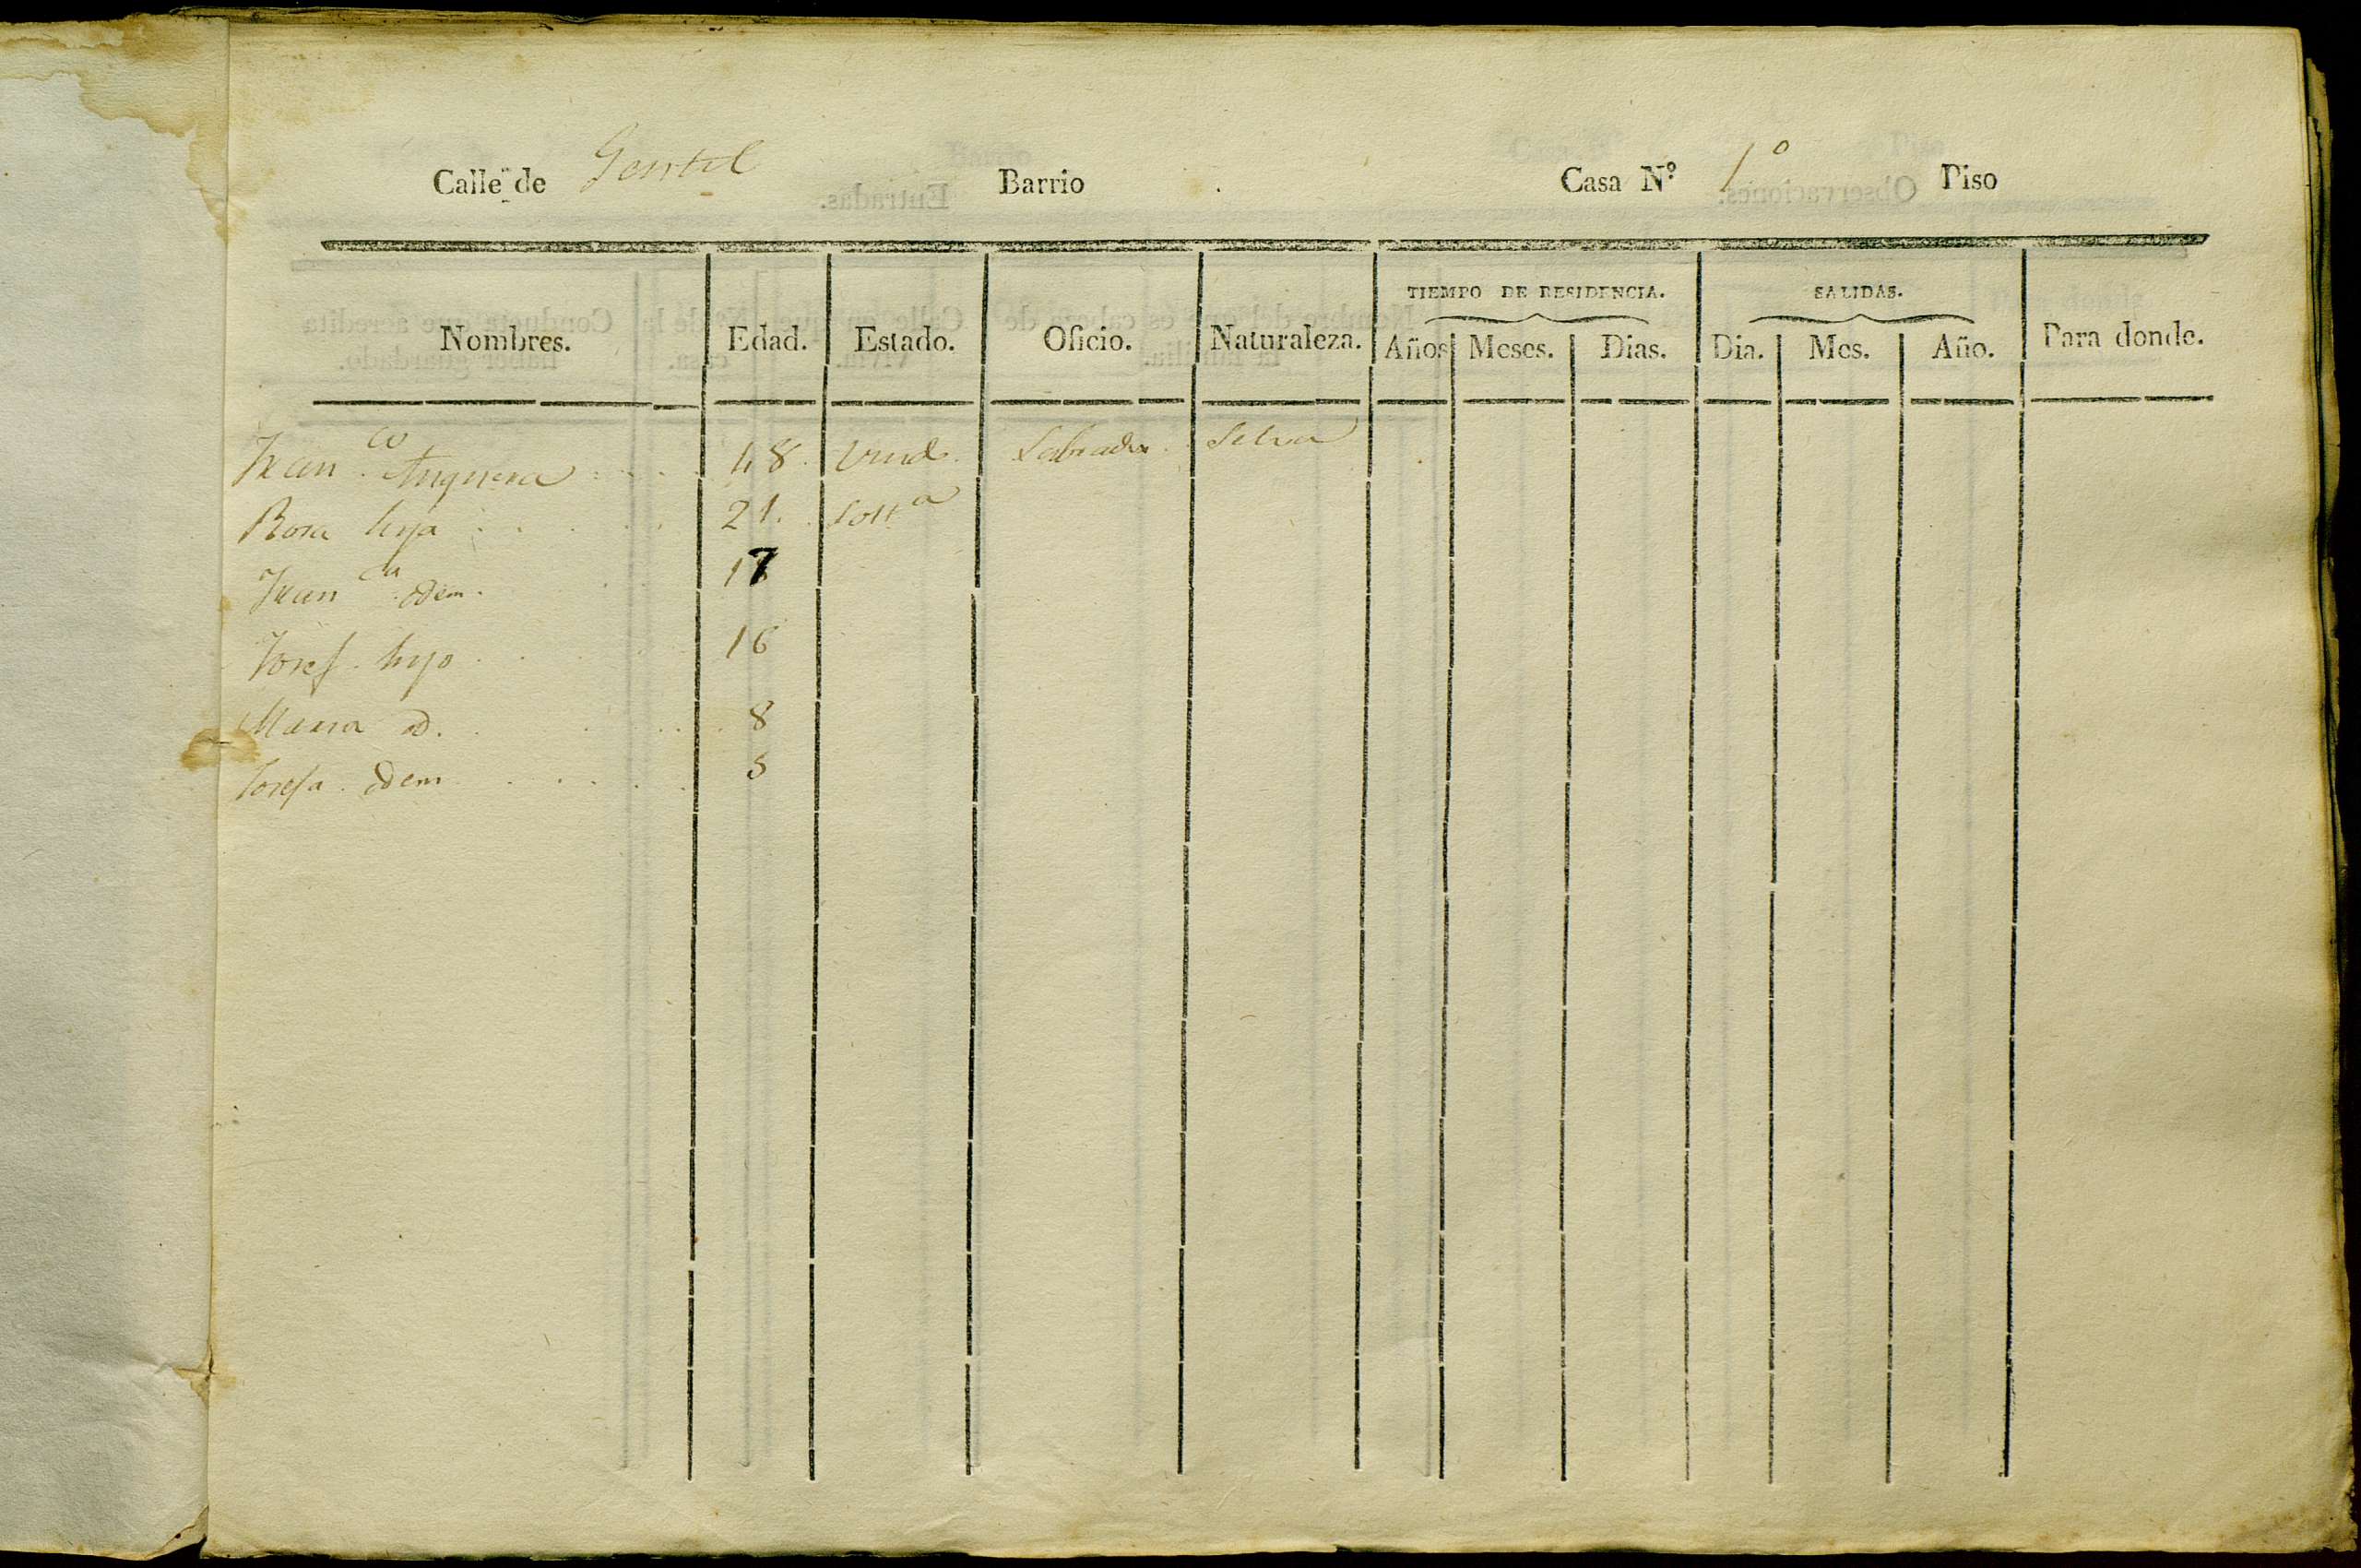 Calle de Gentil Barrio Casa Nº 1º Piso
TIEMPO DE RESIDENCIA. SALIDAS.
Nombres. Edad. Estado. Oficio. Naturaleza. Años Meses. Dias. Dia. Mes. Año. Para donde.
Franco Anguera 48. Viud. Labrador Selva
Rosa hija 21. Solta
Franca idem. 17
Josef hijo 16
Maria id. 8
Josefa idem 5